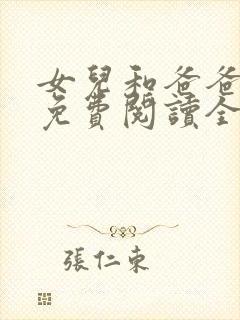 女兒和爸爸
免費閱讀全
張仁東